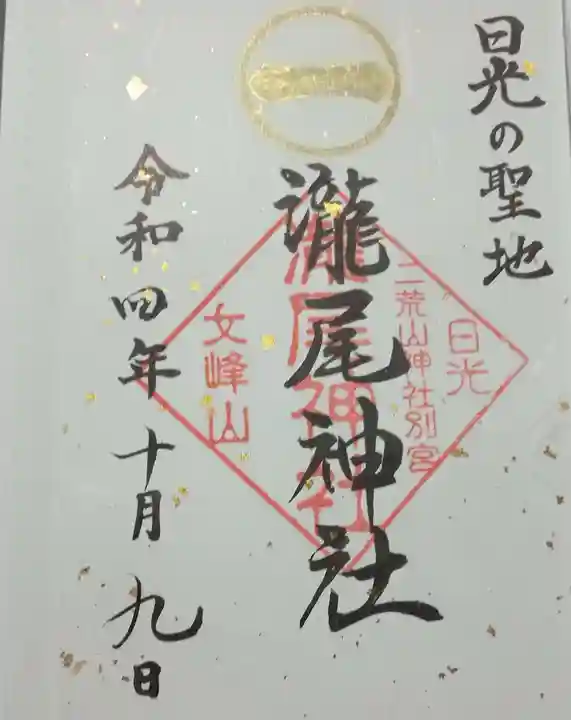 日光の聖地
瀧尾神社
日光
二荒山神社別宮
瀧尾神社
女峰山
令和四年十月九日